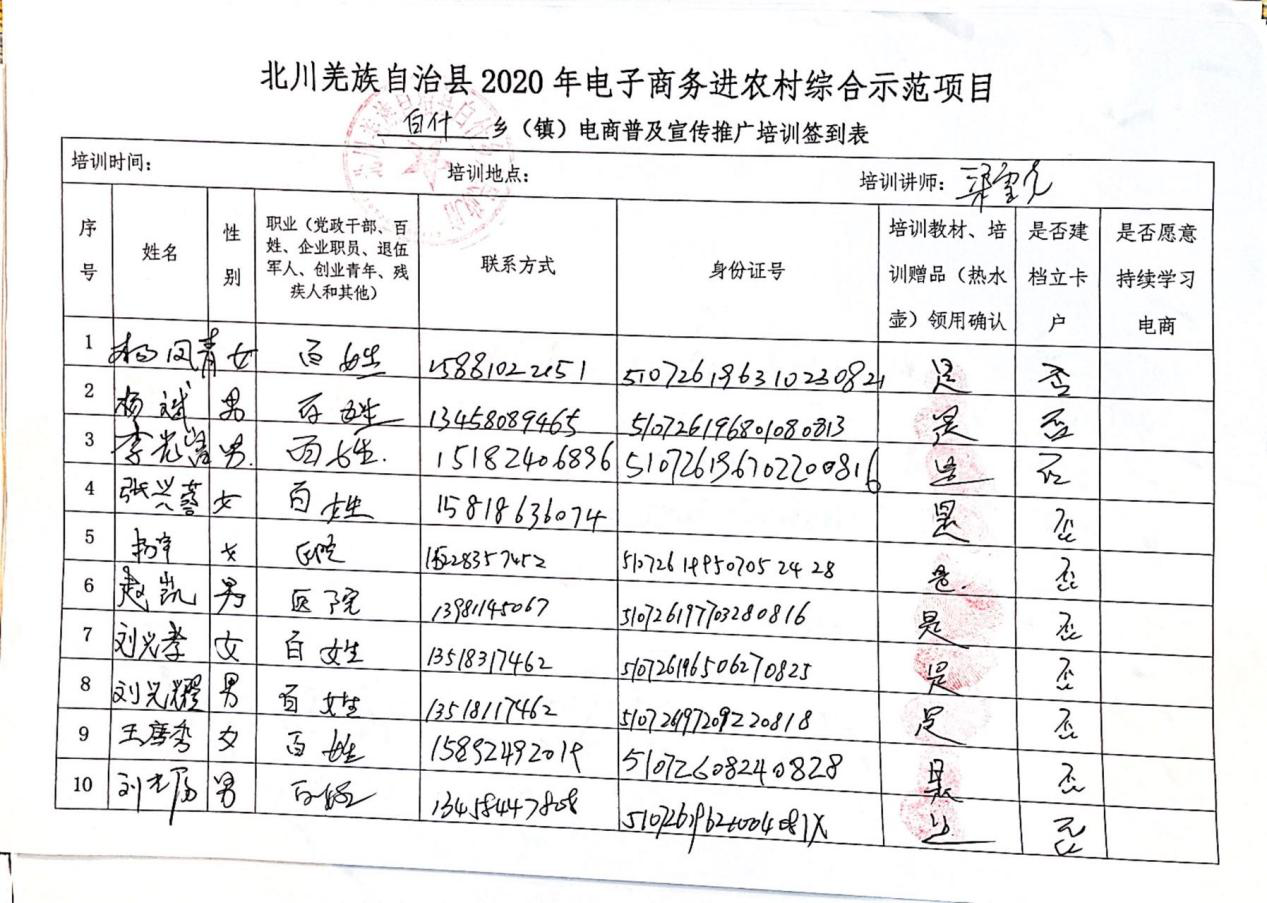 北川羌族自治县2020年电子商务进农村综合示范项目
白什乡（镇）电商普及宣传推广培训签到表
培训时间： 培训地点： 培训讲师：
序号 姓名 性别 职业（党政干部、百姓、企业职员、退伍军人、创业青年、残疾人和其他） 联系方式 身份证号 培训教材、培训赠品（热水壶）领用确认 是否建档立卡户 是否愿意持续学习电商
1 杨凤青 女 百姓 510726196310230821 是 否
2 杨斌 男 百姓 13458089465 510726196801080813 是 否
3 李光 男. 百姓. 15182406896 510726196702200816 是 否
4 张兴 女 百姓 15818636074 是 否
5 女 医院 15228357452 510726199507052428 是. 否
6 赵凯 男 医院 13981145067 510726197703280816 是 否
7 刘兴孝 女 百姓 13518317462 510726196506270825 是 否
8 刘光耀 男 百姓 13518117462 510726197209220818 是 否
9 王唐秀 女 百姓 15892492019 5107260824 0828 是 否
10 刘光 男 百姓 是 否